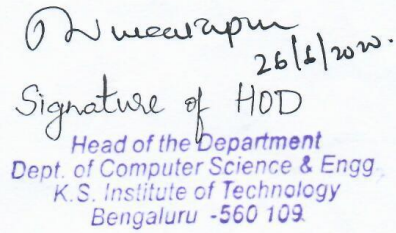 26/6/2020.
Signature of HOD
Head of the Department
Dept. of Computer Science & Engg.
K.S. Institute of Technology
Bengaluru -560 109.